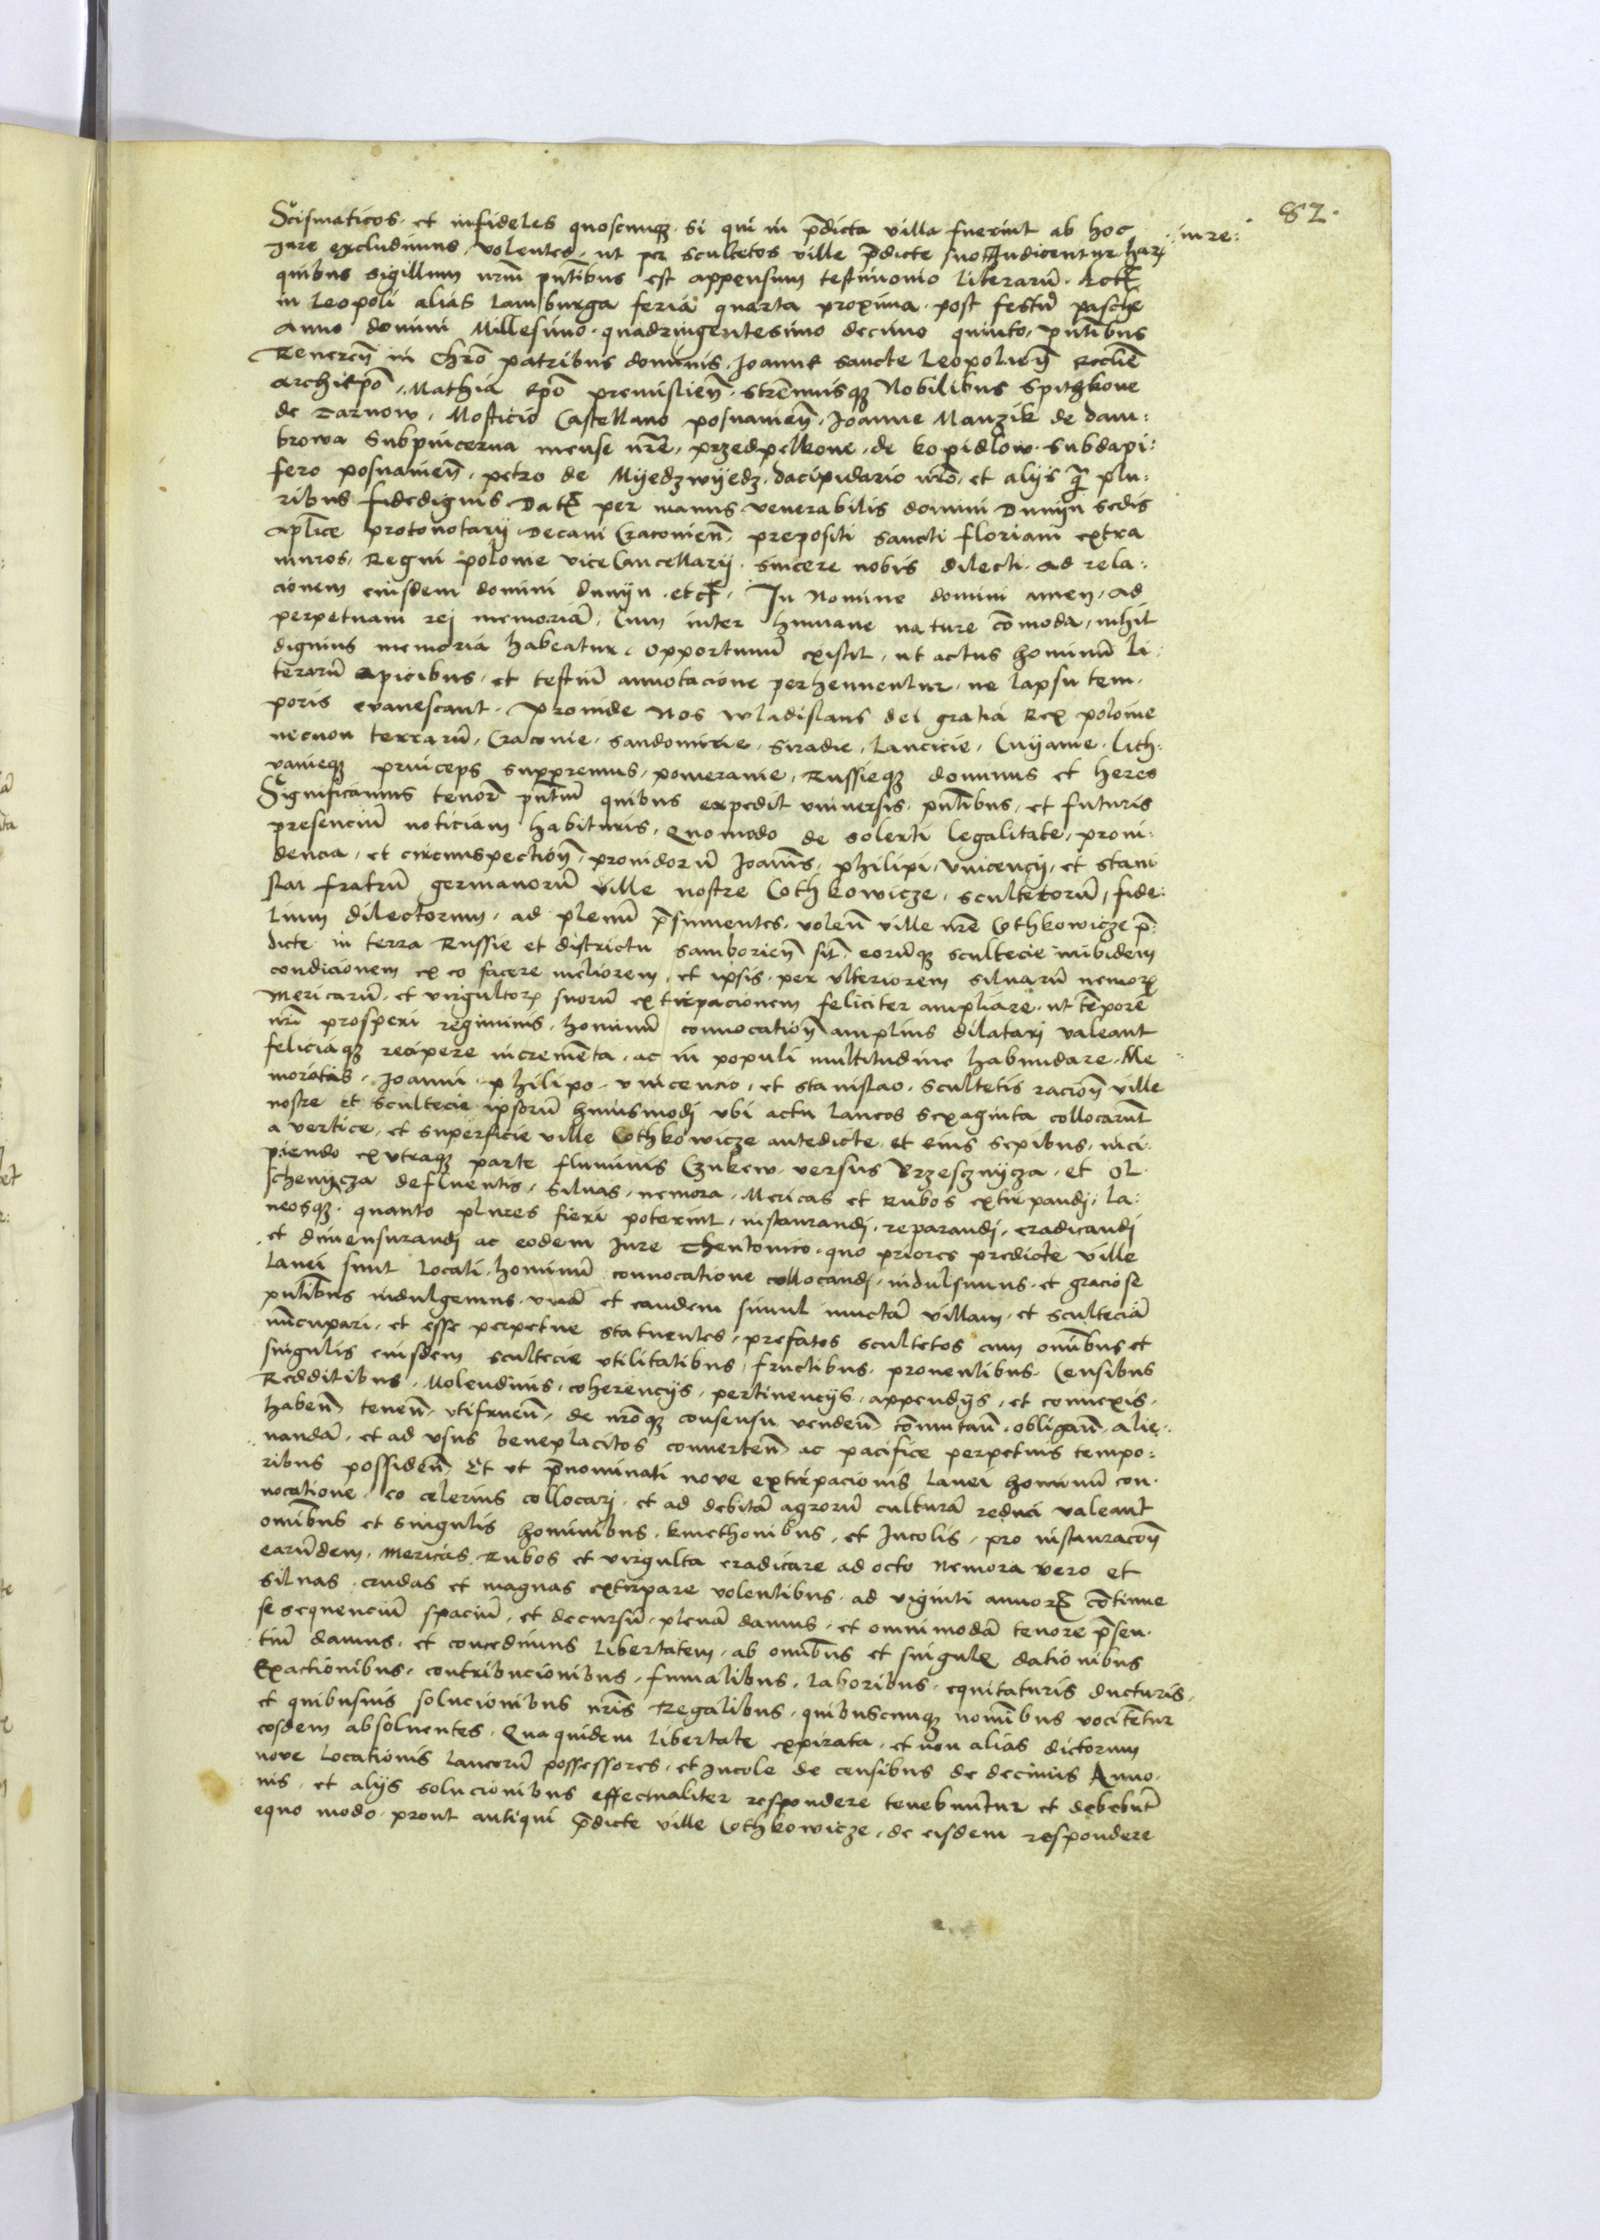 82.
Scismaticos. et infideles quoscunq₃. si qui in p̄dicta villa fuerint ab hoc
iure:
Iure excludimus, volentes, ut per scultetos ville p̄dicte iudicentur har
quibus sigillum nr̄m pn̄tibus est appensum testimonio literarū. Act
in Leopoli alias Lamburga feria quarta proxima. post festū pasche
Anno domini Millesimo. quadringentesimo decimo quinto, pn̄tibus
Reveren̄ in Chrō patribus dominis. Ioanne sancte Leopolien̄ Ecclīe
Archiepō, Mathia Epō premislien̄. strēnuisq₃ Nobilibus Spithkone
de Tarnow, Mosticio Castellano posnanien̄. Ioanne Manzik de dam:
browa Subpincerna mense nr̄e, przedpelkone. de kopidlow. Subdapi:
fero posnanien̄, petro de Myedzwyedz. dacipidario nr̄o. et alijs q̄ plu:
ribus fidedignis Dat per manus venerabilis domini Dunyn sedis
aplīce protonotarij. Decani Cracovien̄ prepositi sancti floriani extra
muros. Regni polonie vice Cancellarij. sincere nobis dilecti. ad rela:
cionem eiusdem domini dunyn. etc. In Nomine domini amen, ad
perpetuam rej memoriā. Cum inter humane nature cōmoda, nihil
dignius memoria habeatur. opportunū existit, ut actus hominū li:
terarū apicibus, et testiū annotacione perhennentur. ne lapsu tem.
poris evanescant. Proinde Nos wladislaus dei gratia Rex polonie
necnon terrarū, Cracovie. sandomirie. Siradie, Lancicie, Cuyavie. Lith:
vanieq₃ princeps supremus, pomeranie, Russieq₃ dominus et heres
Significamus tenorē pn̄tiū quibus expedit universis. pn̄tibus, et futuris
presenciū noticiam habituris, Quomodo de solerti legalitate, provi:
dencia, et circunspection̄, providorū Ioannis, philipi, vincencij, et stani
slai fratrū germanorū ville nostre Cothkowicze, scultetorū, fide:
lium dilectorum, ad plenū p̄sumentes. volen̄ ville nr̄e Cothkowicze p̄:
dicte in terra Russie et districtu samborien̄ sit̄. eorūq₃ scultecie inibidem
condicionem ex eo facere meliorem, et ipsis. per ulteriorem silvarū nemor
Mericarū. et virgultor suorū extirpacionem feliciter ampliare. ut tēpore
nr̄i prosperi regiminis. hominū convocation̄ amplius dilatari valeant
feliciaq₃ recipere incremēta. ac in populi multitudine habundare. Me
moratis, Ioanni. philipo. vincencio, et stanislao. Scultetis racion̄ ville
nostre et scultecie ipsorū huiusmodj ubi actu laneos sexaginta collocarūt
a vertice, et superficie ville Cothkowicze antedicte. et eius sepibus, inci.
piendo ex utraq₃ parte fluminis Czukew. versus Brzesznycza. et Ol.
schenycza defluentis, silvas, nemora, Mericas et Rubos extirpandj, la:
neosq₃. quanto plures fieri poterint, instaurandj. reparandj, eradicandi
et dimensurandj ac eodem Iure Theutonico. quo priores predicte ville
Lanei sunt locati. hominū convocatione collocandj. indulsimus. et graciose
pn̄tibus indulgemus. unā et eandem simul iunctā villam. et scultecià
nūcupari. et esse perpetue statuentes, prefatos scultetos cum omībus et
singulis eiusdem scultecie utilitatibus, fructibus. proventibus. Censibus
Redditibus. Molendinis, coherencijs, pertinencijs. appendijs, et connexis.
haben̄ tenen̄. utifruen̄. de nr̄oq₃ consensu venden̄ cōmutan̄. obligan̄. alie:
nandā. et ad usus beneplacitos converten̄ ac pacifice perpetuis tempo:
ribus possiden̄ Et ut p̄nominati nove extirpacionis lanei hominū con.
vocatione. eo celerius collocarj. et ad debitā agrorū culturā reduci valeant
omībus et singulis hominibus. kmethonibus, et Incolis, pro instauracōn̄
earūdem. Mericas Rubos et virgulta eradicare ad octo nemora vero et
silvas. crudas et magnas extirpare volentibus. ad viginti annor cōtinue
se sequenciū spaciū. et decursū. plenā damus. et omnimodā tenore p̄sen.
tiū damus. et concedimus libertatem. ab omībus et singulę dationibus
Exactionibus. contribucionibus. fumalibus. laboribus. equitaturis ducturis.
et quibusvis solucionibus nr̄is Regalibus. quibuscunq₃ nomībus vocitētur
eosdem absolventes. Qua quidem libertate expirata. et non alias dictorum
nove locationis laneorū possessores. et Incole de censibus de decimis Anno.
nis. et alijs solucionibus effectualiter respondere tenebuntur et debebūt
equo modo. prout antiqui p̄dicte ville Cothkowicze, de eisdem respondere